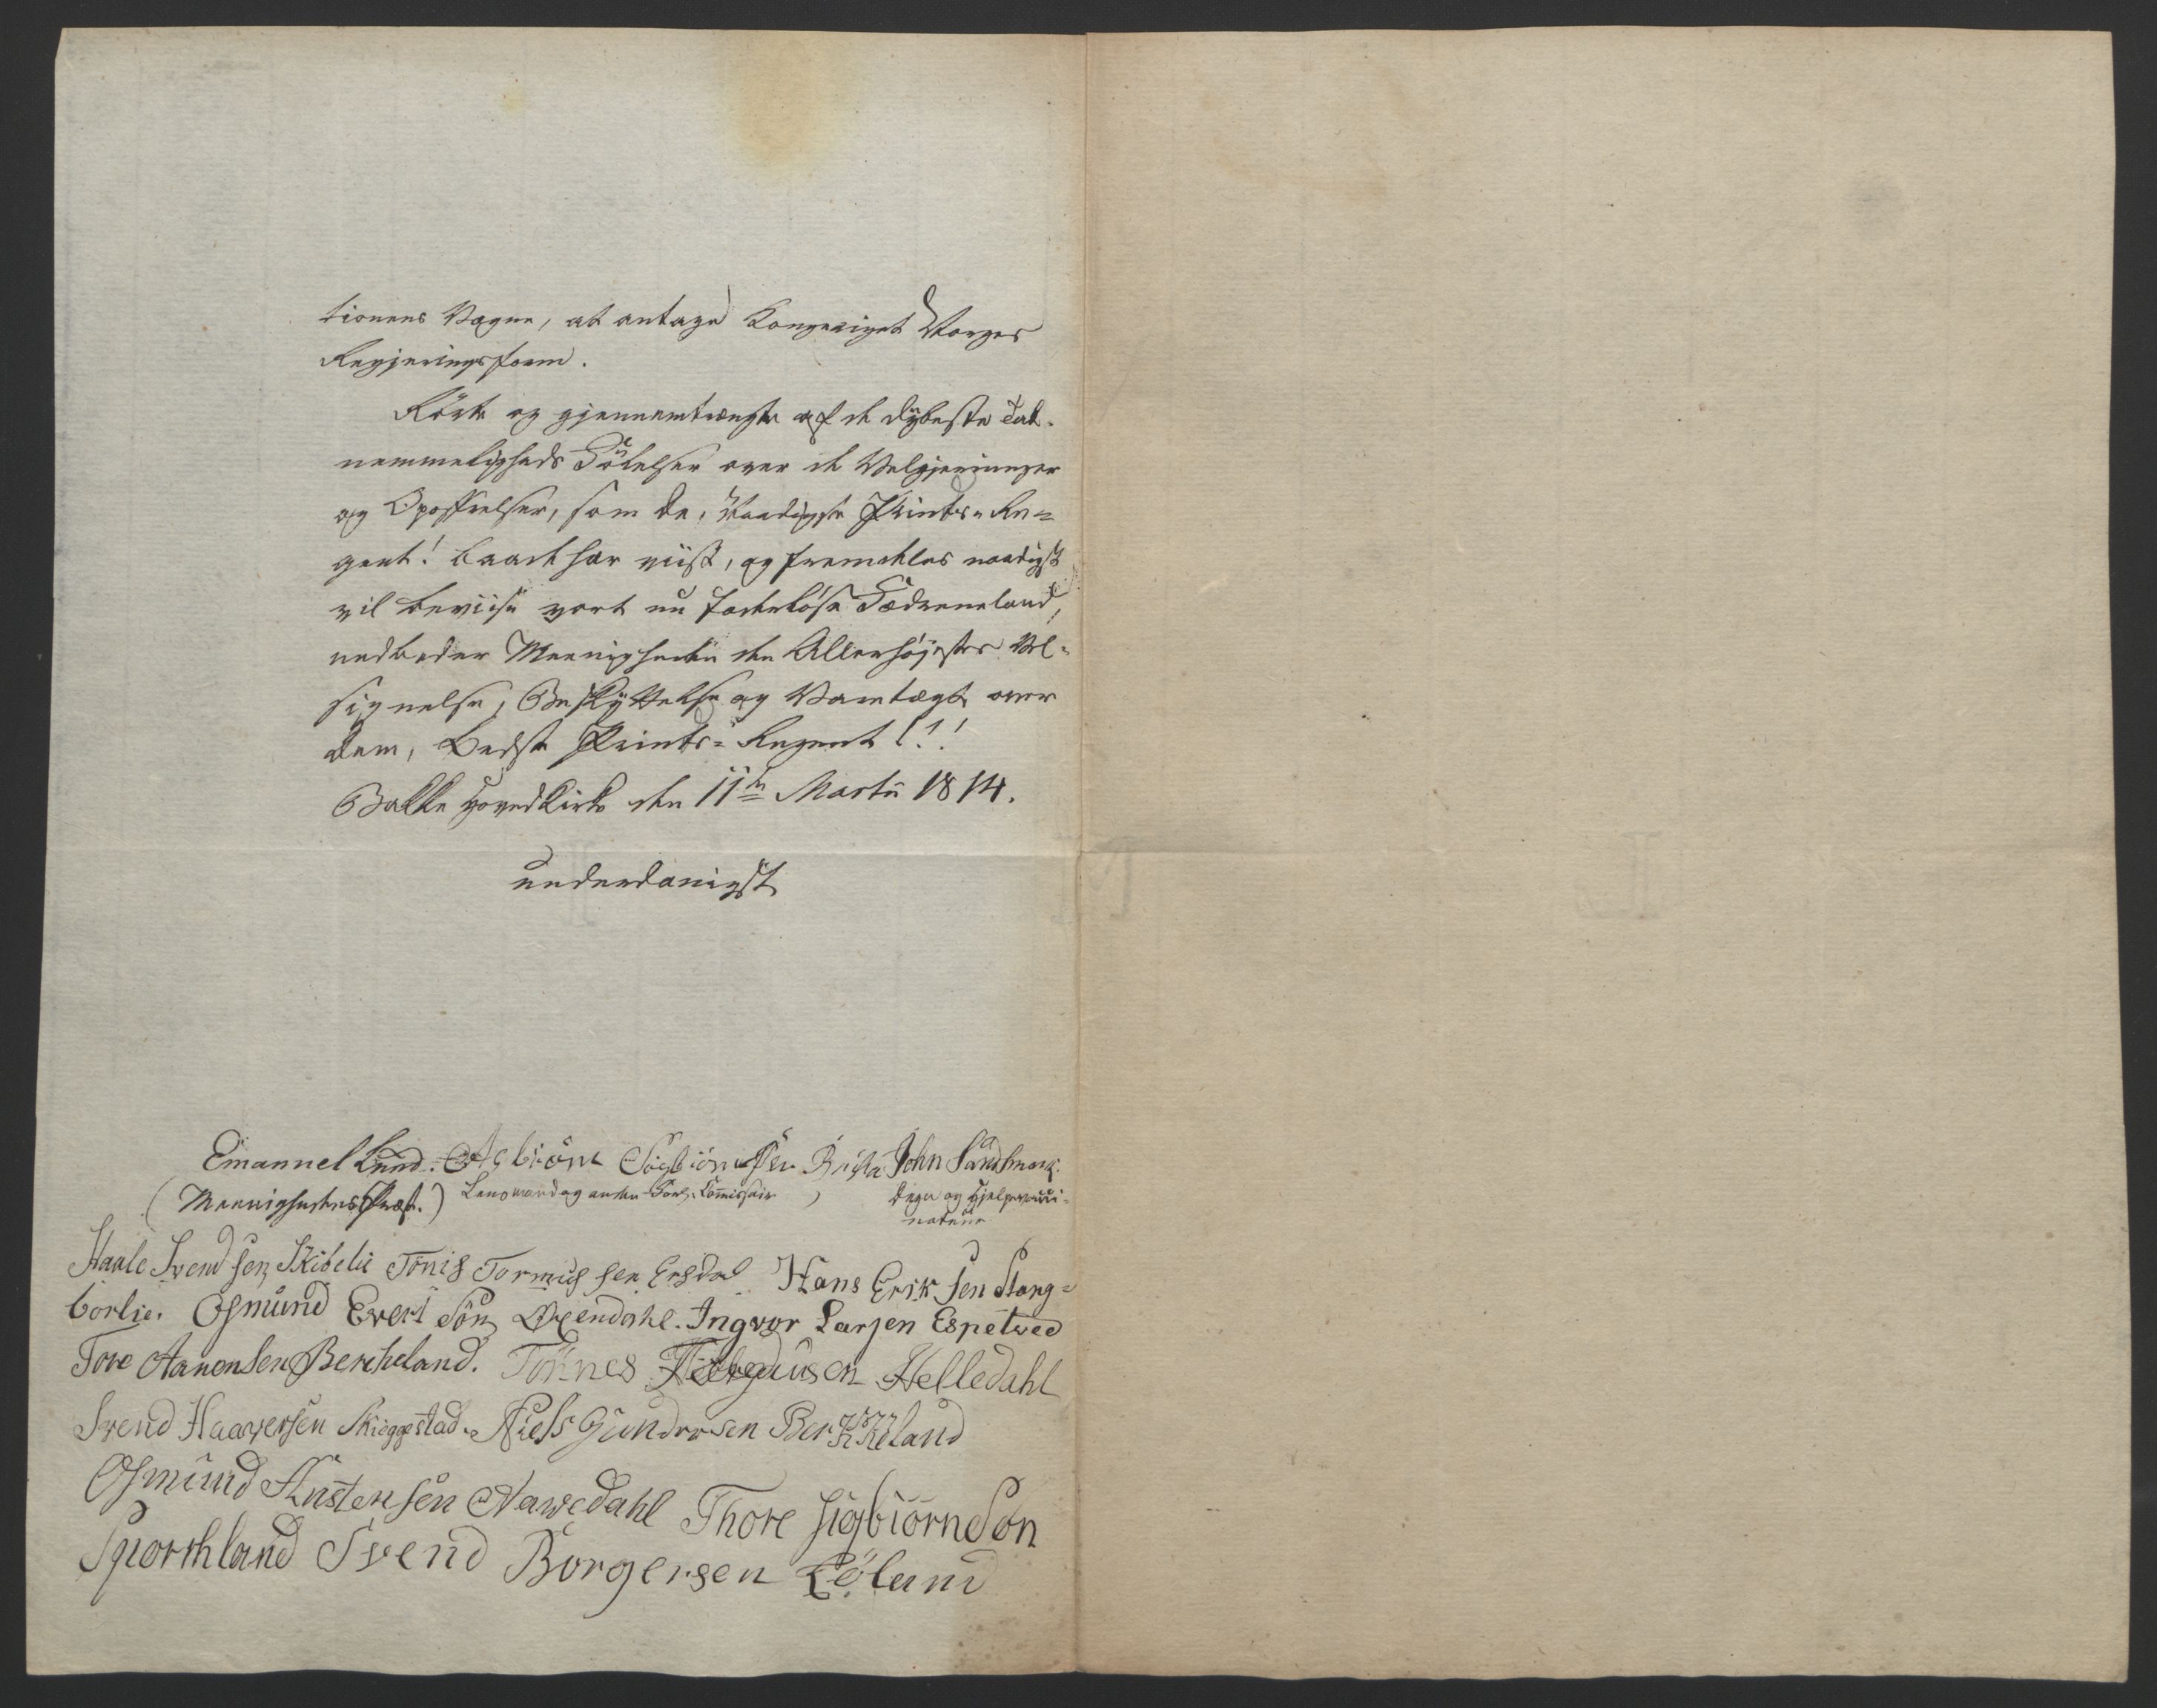 tionens Vegne, at antage Kongeriget Norges
Regjeringsform.
Rörte og gjennemtrængte af de dÿbeste Tak-
nemmeligheds Fölelser over de Velgjerninger
og Opoffrelser, som De, Naadigste Prints-Re=
gent! baade har viist, og fremdeles naadigst
vil beviise vort nu faderlöse Fædreneland,
nedbeder Meenigheden den Allerhöjestes Vel-
signelse, Beskÿttelse og Varetægt over
Dem, bedste Prints-Regent!!!
Bakke Hovedkirke den 11te Martii 1814.
underdanigst
Emanuel Lund. Asbiörn Sigbiörnsen John Sandsmark.
(Meenighedens Præst.) Lensmand og anden Forl: Commissair Degn og Hjelpevacci=
nateur
Haale Svendsen Skibelie Tönis Tormusen Ersdal Hans Eriksen Stang=
borlie. Osmund Evertsön Oxendahl. Ingvor Larsen Espetved
Tore Aanensen Bercheland. Tönnes Helledahl
Svend Haaversen Skieggestad. Niels Gundersen Berkkeland
Osmund Austensen Navedahl Thore Sigbiörnsön
Sporchland Svend Borgersen Löland